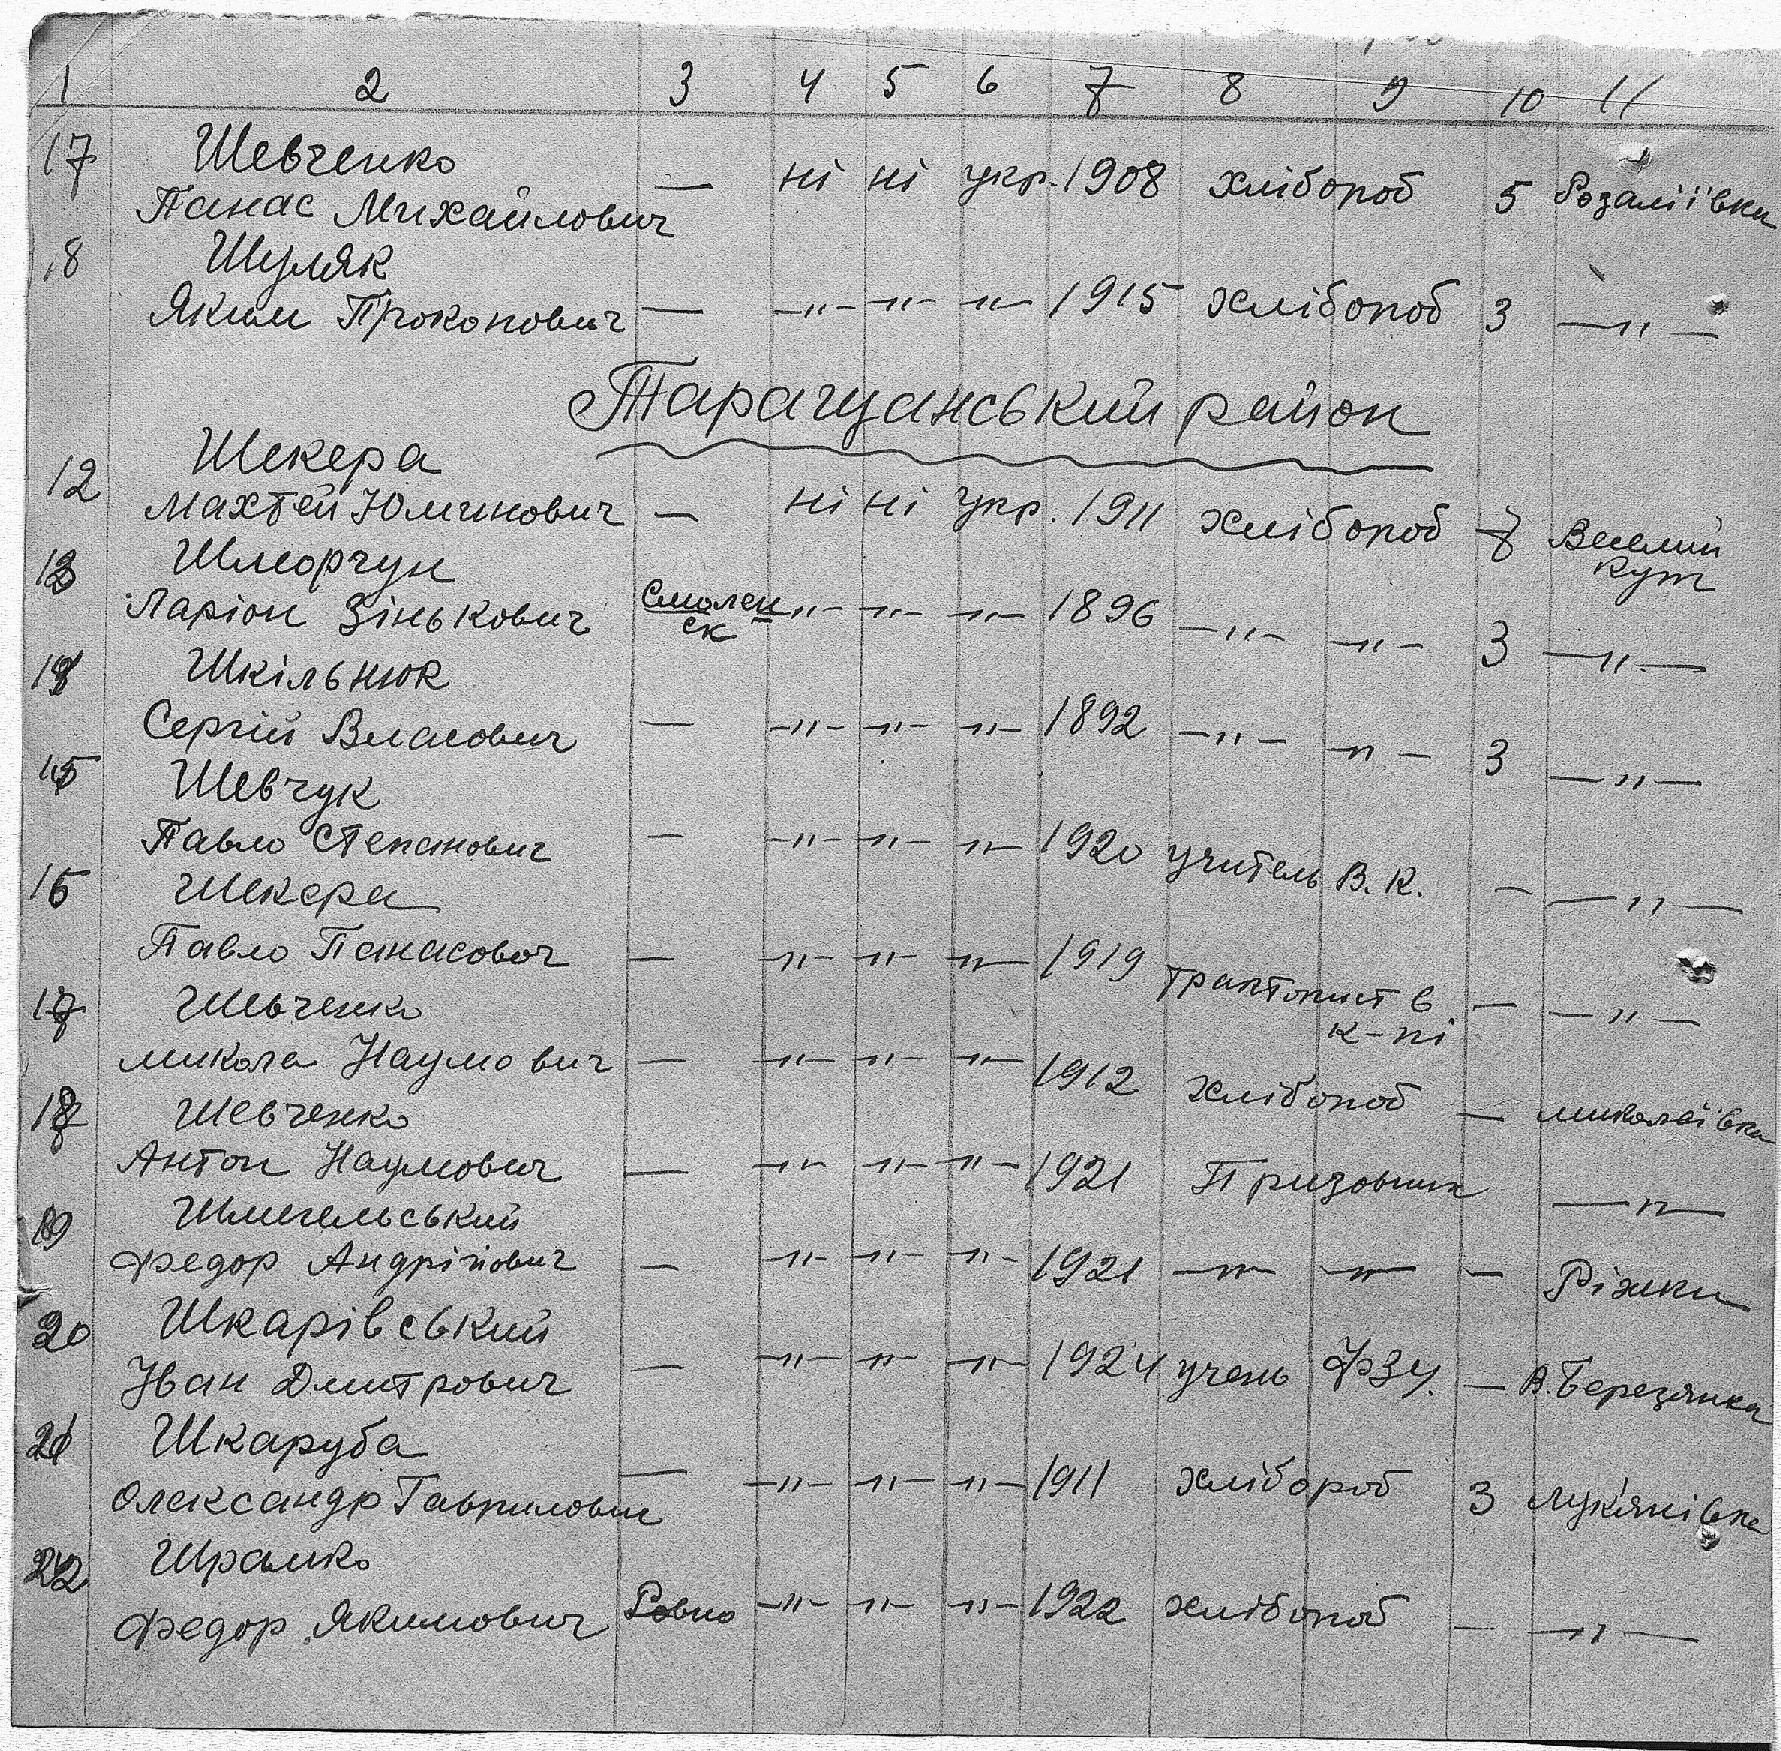 1 2 3 4 5 6 7 8 9 10 11
17 Шевченко
Панас Михайлович — ні ні укр. 1908 хлібороб 5 Розаліївка
18 Шуляк
Яким Прокопович — —"— —"— —"— 1915 хлібороб 3 —"—
Таращанський район
12 Шекера
Махтей Юхимович — ні ні укр. 1911 хлібороб 7 Веселий
Кут
13 Шморгун
Ларіон Зінькович Смолен
ск —"— —"— —"— 1896 —"— —"— 3 —"—
14 Шкільнюк
Сергій Власович — —"— —"— —"— 1892 —"— —"— 3 —"—
15 Шевчук
Павло Степанович — —"— —"— —"— 1920 учитель В. К. — —"—
16 Шекера
Павло Панасович — —"— —"— —"— 1919 тракторист в — —"—
к-пі
17 Шевченко
Микола Наумович — —"— —"— —"— 1912 хлібороб — Миколаївка
18 Шевченко
Антон Наумович — —"— —"— —"— 1921 Призовник —"—
19 Шмигельський
Федор Андрійович — —"— —"— —"— 1921 —"— —"— — Ріжки
20 Шкарівський
Іван Дмитрович — —"— —"— —"— 1924 учень ФЗУ. — В. Березянка
21 Шкаруба
Олександр Гаврилович — —"— —"— —"— 1911 хлібороб 3 Лук'янівка
22 Шрамко
Федор Якимович Ровно —"— —"— —"— 1922 хлібороб — —"—